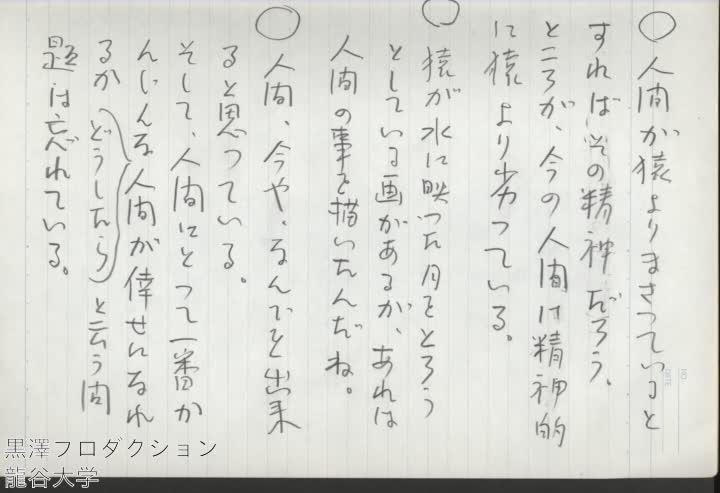 ○人間が猿よりまさっていると
すればその精神だろう、
ところが、今の人間は精神的
に猿より劣っている。
○猿が水に映った月をとろう
としている画があるが、あれは
人間の事を描いたんだね。
○人間、今や、なんでも出来
ると思っている。
そして、人間にとって一番か
んじんな人間が倖せになれ
るか(どうしたら)と云う問
題は忘れている。
NO
DATE
黒澤プロダクション
龍谷大学